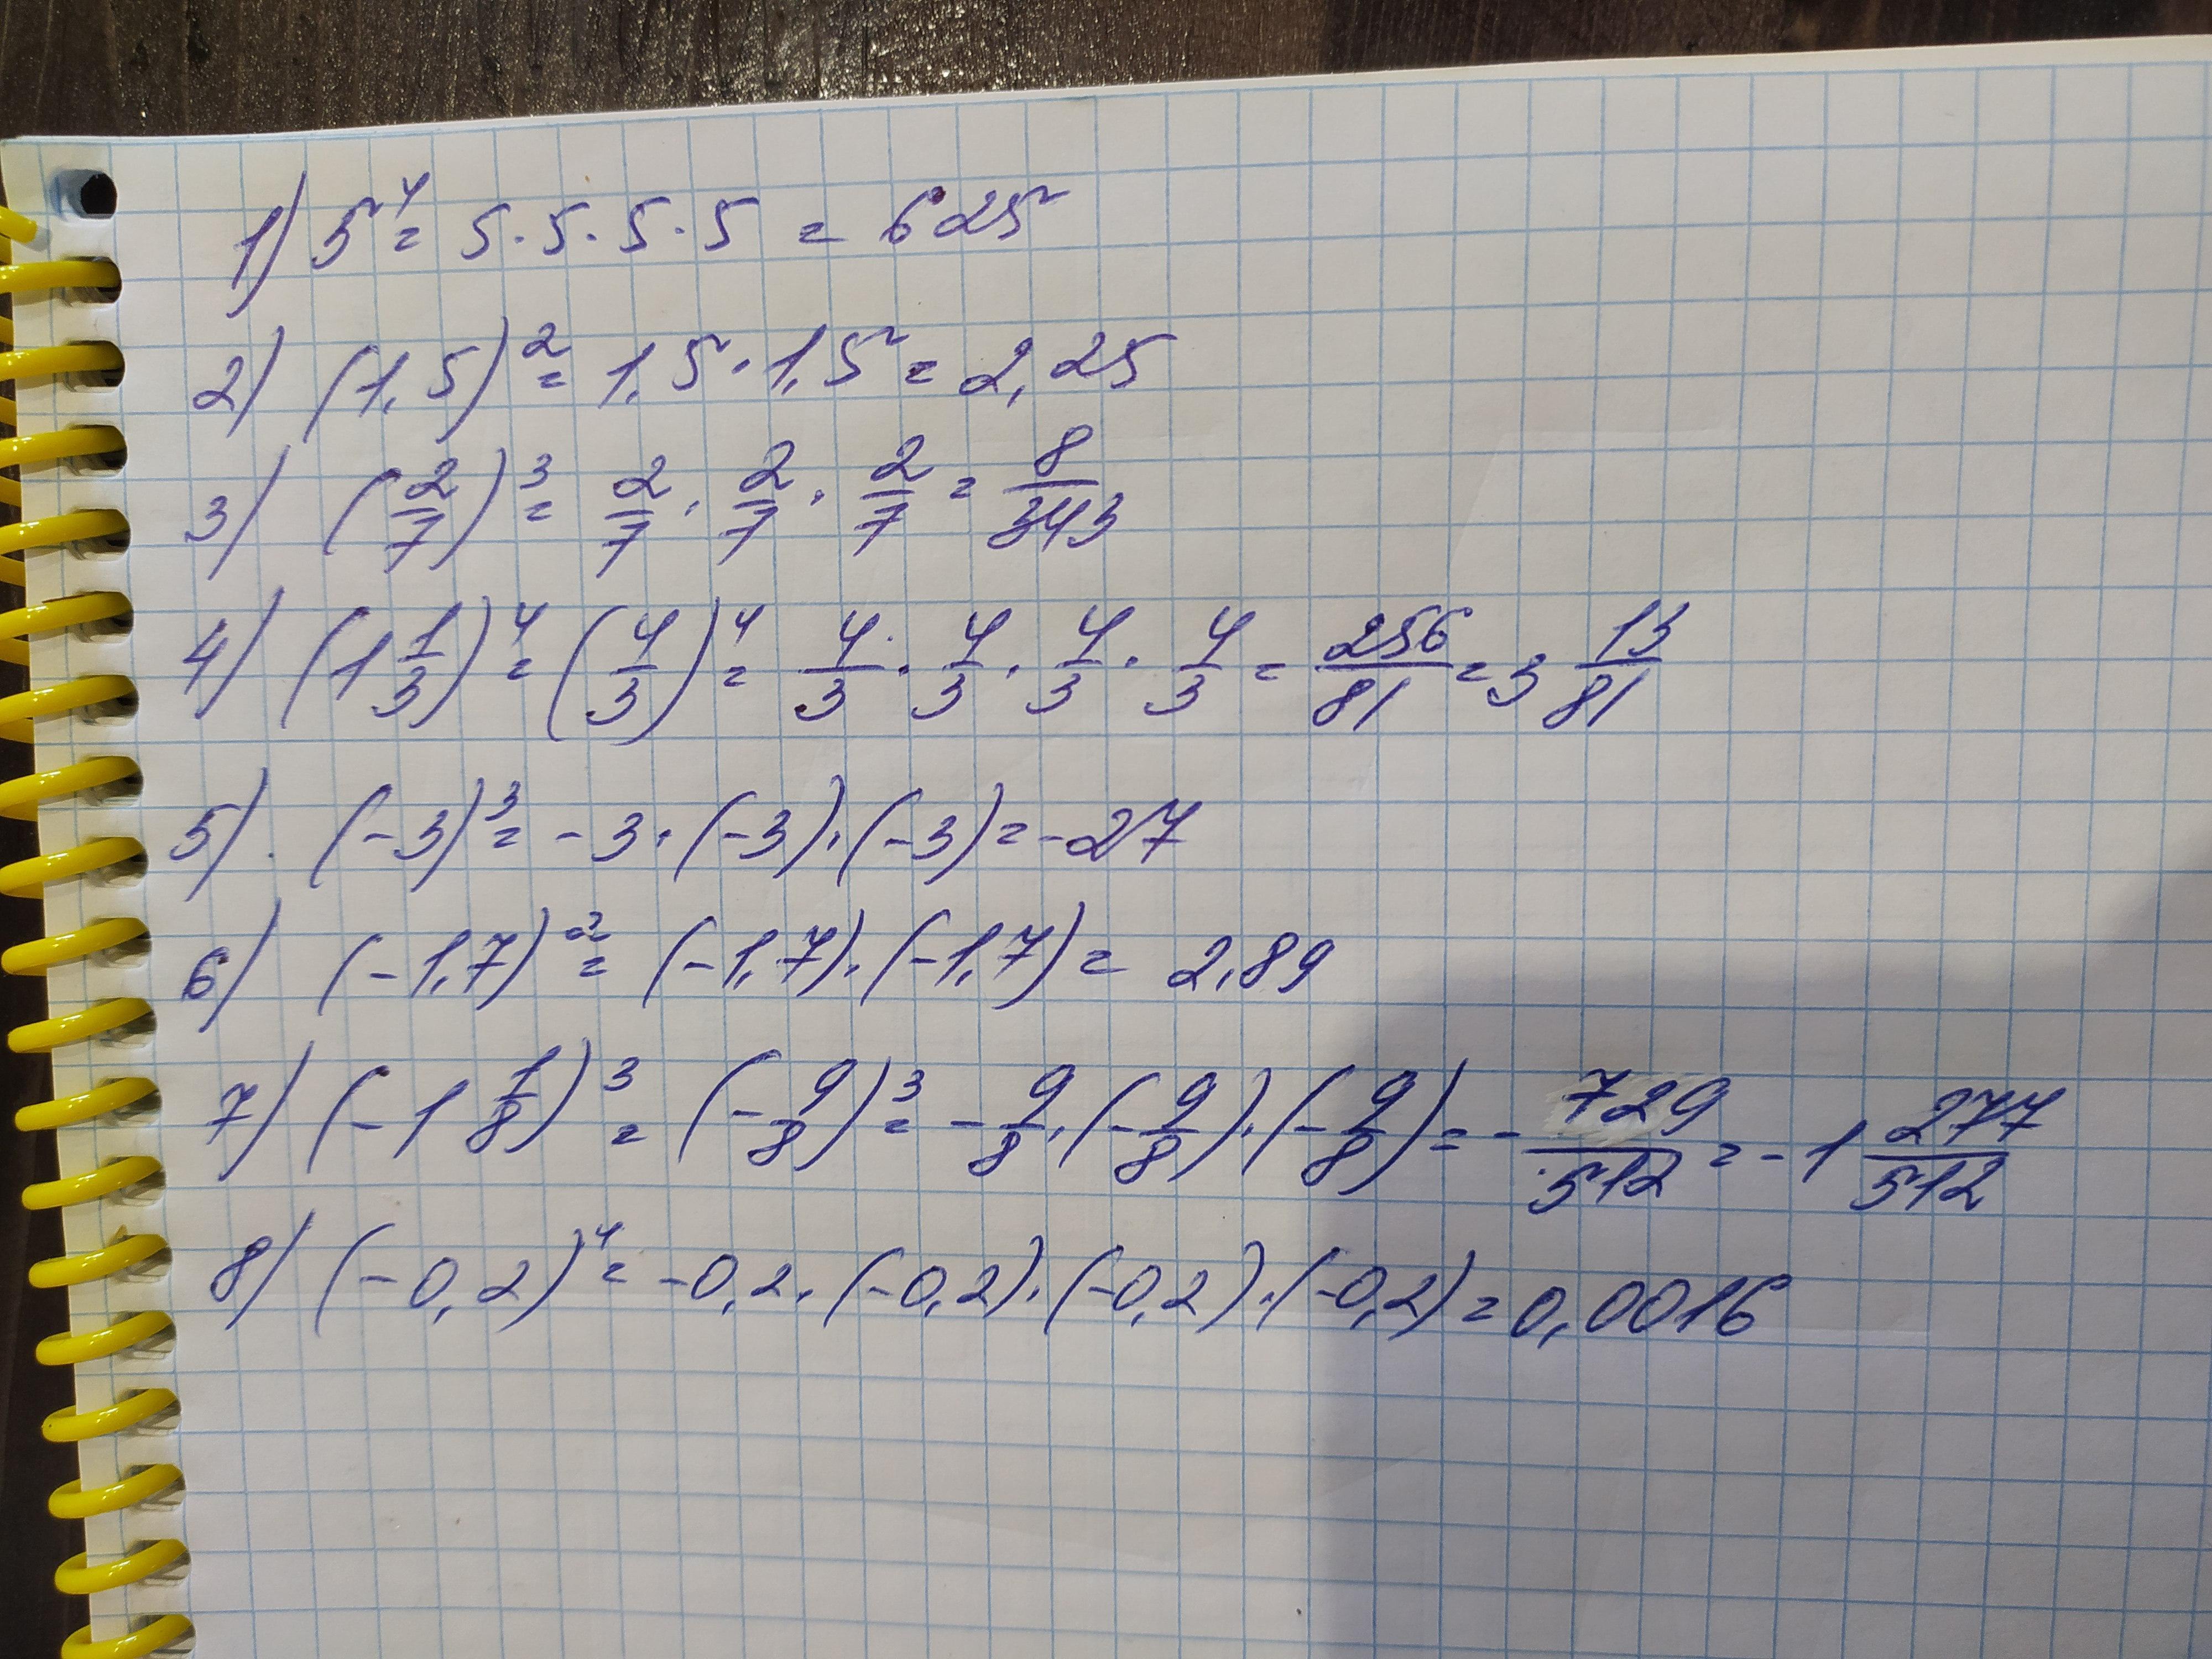 1) 5⁴ = 5 · 5 · 5 · 5 = 625
2) (1,5)² = 1,5 · 1,5 = 2,25
3) (2/7)³ = 2/7 · 2/7 · 2/7 = 8/343
4) (1 1/3)⁴ = (4/3)⁴ = 4/3 · 4/3 · 4/3 · 4/3 = 256/81 = 3 13/81
5) (-3)³ = -3 · (-3) · (-3) = -27
6) (-1,7)² = (-1,7) · (-1,7) = 2,89
7) (-1 1/8)³ = (-9/8)³ = -9/8 · (-9/8) · (-9/8) = -729/512 = -1 277/512
8) (-0,2)⁴ = -0,2 · (-0,2) · (-0,2) · (-0,2) = 0,0016